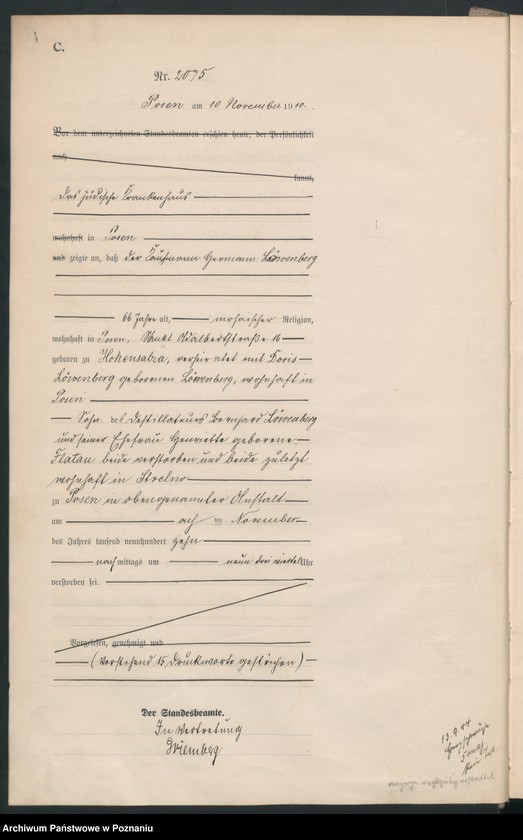 C.
Nr. 2075
Posen am 10 November 1910.
Vor dem unterzeichneten Standesbeamten erschien heute, der Persönlichkeit
nach
kannt,
das jüdische Krankenhaus
wohnhaft in Posen
und zeigte an, daß der Kaufmann Hermann Löwenberg
66 Jahre alt, mosaischer Religion,
wohnhaft in Posen, Sankt Adalbertstraße 16
geboren zu Hohensalza, verheiratet mit Doris
Löwenberg geborenen Löwenberg, wohnhaft in
Posen
Sohn des Destillateurs Bernhard Löwenberg
und seiner Ehefrau Henriette geborene
Flatau beide verstorben und beide zuletzt
wohnhaft in Strelno
zu Posen in obengenannter Anstalt
am acht November
des Jahres tausend neunhundert zehn
nachmittags um neun drei viertel Uhr
verstorben sei.
Vorgelesen, genehmigt und
(Vorstehend 15 Druckworte gestrichen)
Der Standesbeamte.
In Vertretung
13.9.44
Archiwum Państwowe w Poznaniu